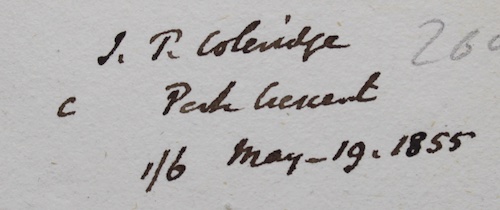 J. T. Coleridge
c Park Crescent
1/6 May - 19. 1855
260